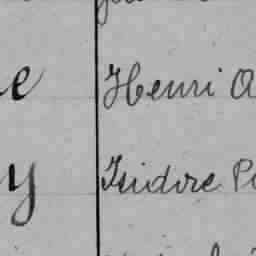 e Henri A
y Isidore P